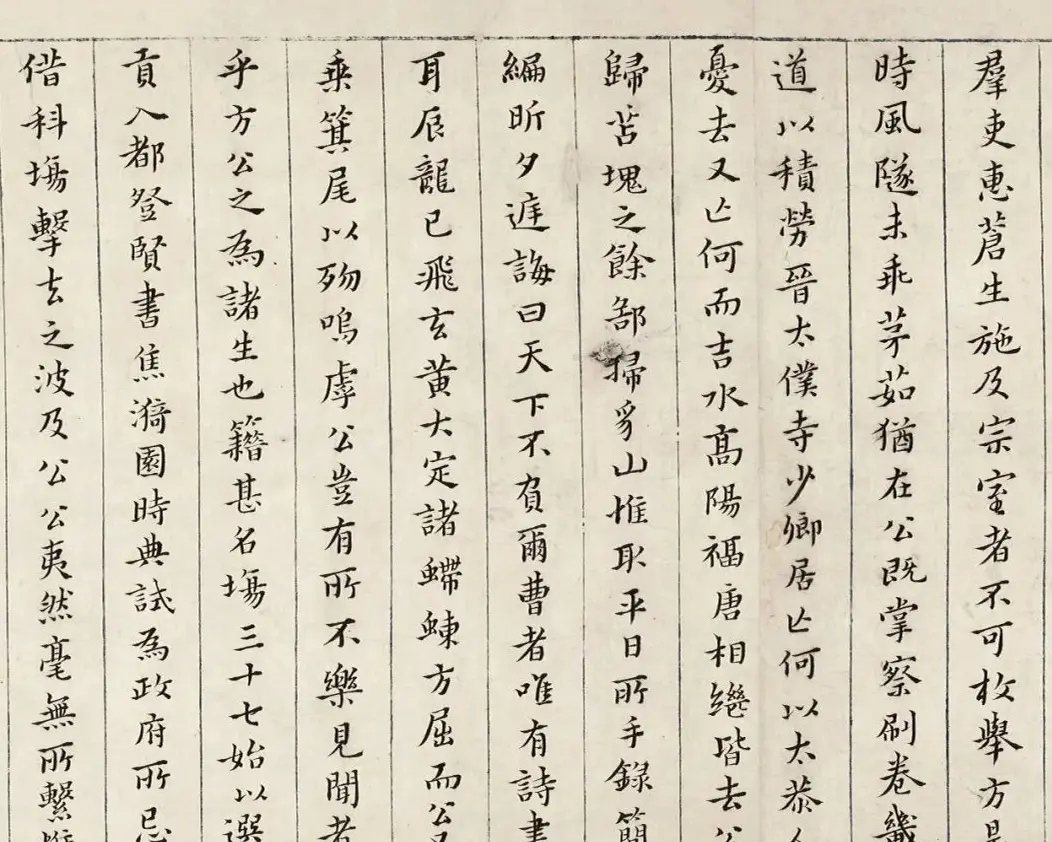 羣吏惠蒼生施及宗室者不可枚舉方是
時風隧未乖茅茹猶在公既掌察刷卷畿
道以積勞晉太僕寺少卿居亡何以太恭人
憂去又亡何而吉水高陽福唐相繼皆去公
歸苫塊之餘郤掃豸山惟取平日所手錄簡
編昕夕遊誨曰天下不負爾曹者唯有詩書
耳辰龍已飛玄黃大定諸螮蝀方屈而公又
乘箕尾以歿嗚虖公豈有所不樂見聞者
乎方公之為諸生也籍甚名塲三十七始以選
貢入都登賢書焦漪園時典試為政府所忌
借科塲擊去之波及公公夷然毫無所繫